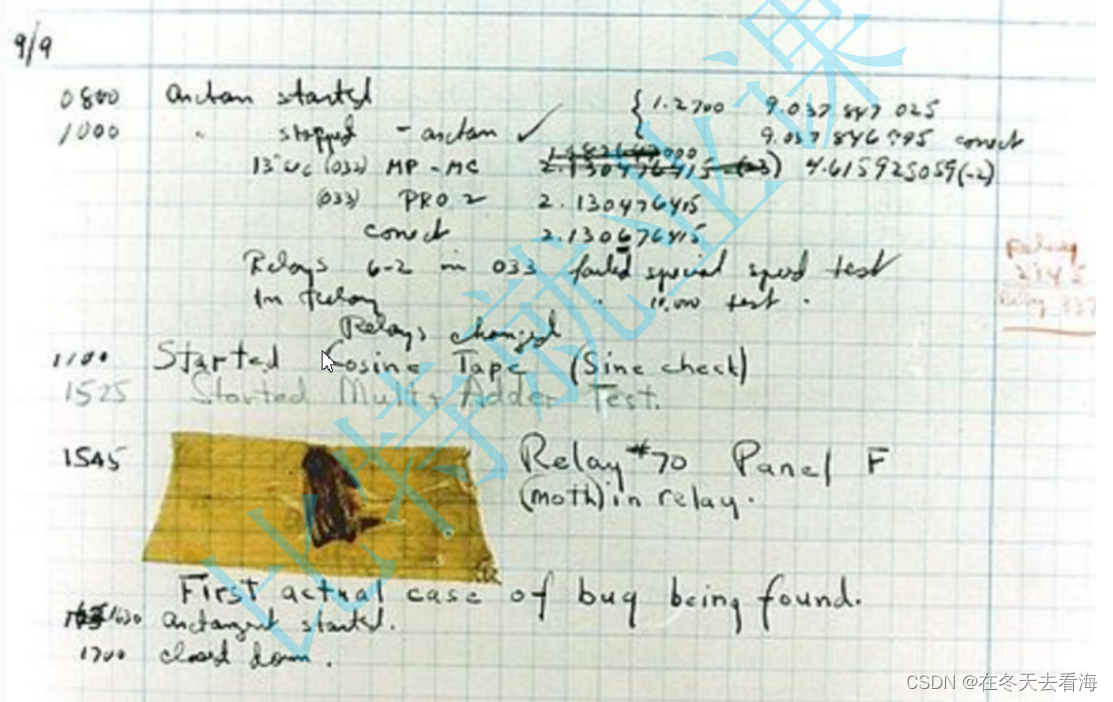 9/9
0800 arctan started { 1.2700 9.037 847 025
1000 " stopped - arctan ✓ 9.037 846 995 correct
13"uc (032) MP - MC 4.615925059(-2)
(033) PRO 2 2.130476415
correct 2.130676415
Relays 6-2 in 033 failed special speed test
In relay " 10.000 test .
Relays changed
Relay
1100 Started Cosine Tape (Sine check)
1525 Started Mult+Adder Test.
1545 Relay #70 Panel F
(moth) in relay.
First actual case of bug being found.
1630 arctangent started.
1700 closed down.
比特就业课
CSDN @在冬天去看海